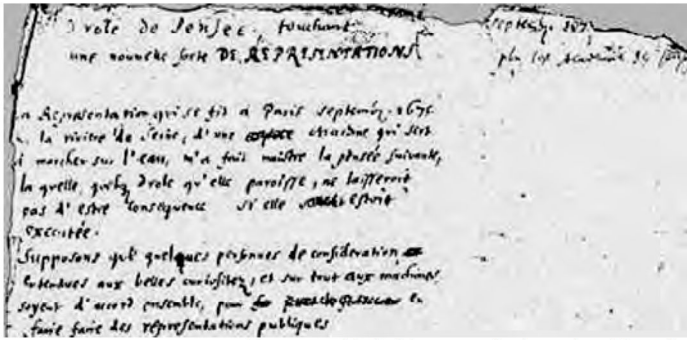 Drole de Pensée, touchant
une nouvelle sorte DE REPRESENTATIONS
Septembr. 1675
Academie
a Representation qui se fit à Paris septembr. 1675
la riviere de Seine, d'une Machine qui sert
à marcher sur l'eau, m'a fait naistre la pensée suivante,
la quelle, quelq drole qu'elle paroisse, ne laisseroit
pas d'estre consequence si elle estoit
executée.
Supposons que quelques personnes de consideration
entendues aux belles curiositez, et sur tout aux machines,
soyent d'accord ensemble, pour en
faire faire des representations publiques